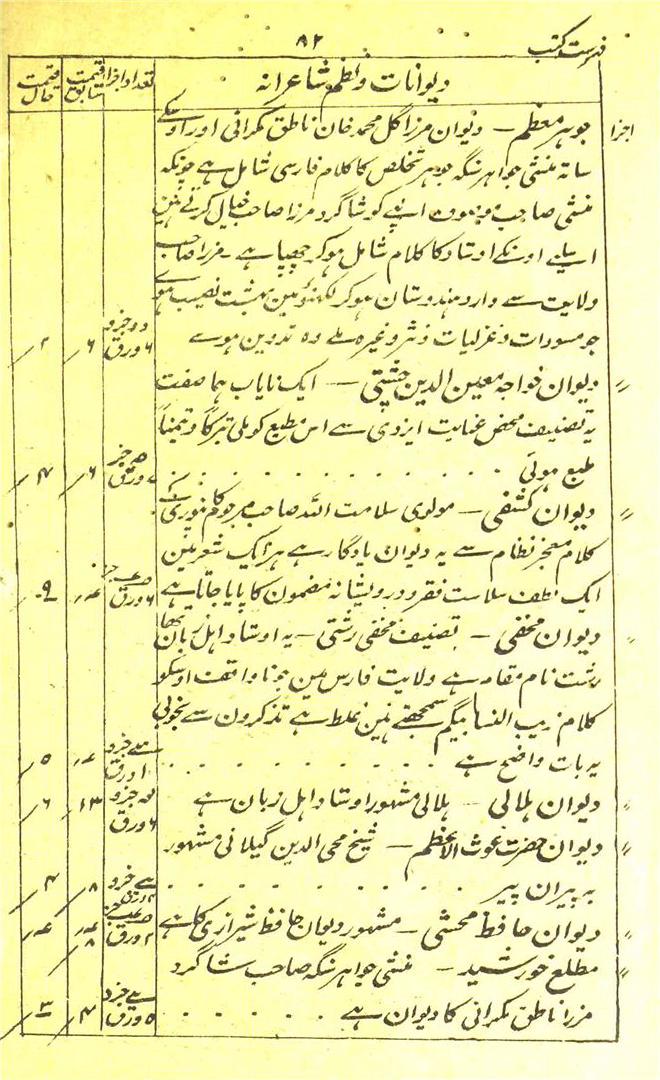 فہرست کتب
۸۲
دیوانات ونظم شاعرانہ
تعداد اجزا
قیمت سابق
قیمت حال
اجزا
جوہر معظم – دیوان مرزا گل محمد خان ناطق مکرانی اور اونکے
ساتہ منشی جواہر سنگہ جوہر تخلص کا کلام فارسی شامل ہے چونکہ
منشی صاحب موصوف اپنے کو شاگرد مرزا صاحب خیال کرتے ہین
اسلیے اونکے اوستاد کا کلام شامل ہوکر چھپا ہے – مرزا صاحب
ولایت سے وارد ہندوستان ہوکر لکھنؤ مین بہشت نصیب ہوے
جو مسودات وغزلیات ونثر وغیرہ ملے وہ تدوین ہوے
دو جزو ۶ ورق
۶ ر
۲ ر
〃 دیوان خواجہ معین الدین چشتی – ایک نایاب ہما صفت
یہ تصنیف محض عنایت ایزدی سے اس مطبع کو ملی تبرکاً وتیمناً
طبع ہوئی
۶ ر
۴ ر
〃 دیوان کشفی – مولوی سلامت اللہ صاحب مرحوم کانپوری کے
کلام معجز نظام سے یہ دیوان یادگار ہے ہر ایک شعر مین
ایک لطف سلاست فقر ودرویشانہ مضمون کا پایا جاتا ہے
۶ ورق
〃 دیوان مخفی – تصنیف مخفی رشتی – یہ اوستاد اہل زبان تھا
رشت نام مقام ہے ولایت فارس مین جو ناواقف اوسکو
کلام زیب النسا بیگم سمجھتے ہین غلط ہے تذکرون سے بخوبی
یہ بات واضح ہے
۱۰ ورق
۵ ر
〃 دیوان ہلالی – ہلالی مشہور اوستاد اہل زبان ہے
۶ ورق
۱۳
۶ ر
〃 دیوان حضرت غوث الاعظم – شیخ محی الدین گیلانی مشہور
بہ پیران پیر
۸ ر
۴ ر
〃 دیوان حافظ محشی – مشہور دیوان حافظ شیرازی کا ہے
۲ ورق
〃 مطلع خورشید – منشی جواہر سنگہ صاحب شاگرد
مرزا ناطق مکرانی کا دیوان ہے
۵ ورق
۴ ر
۳ ر